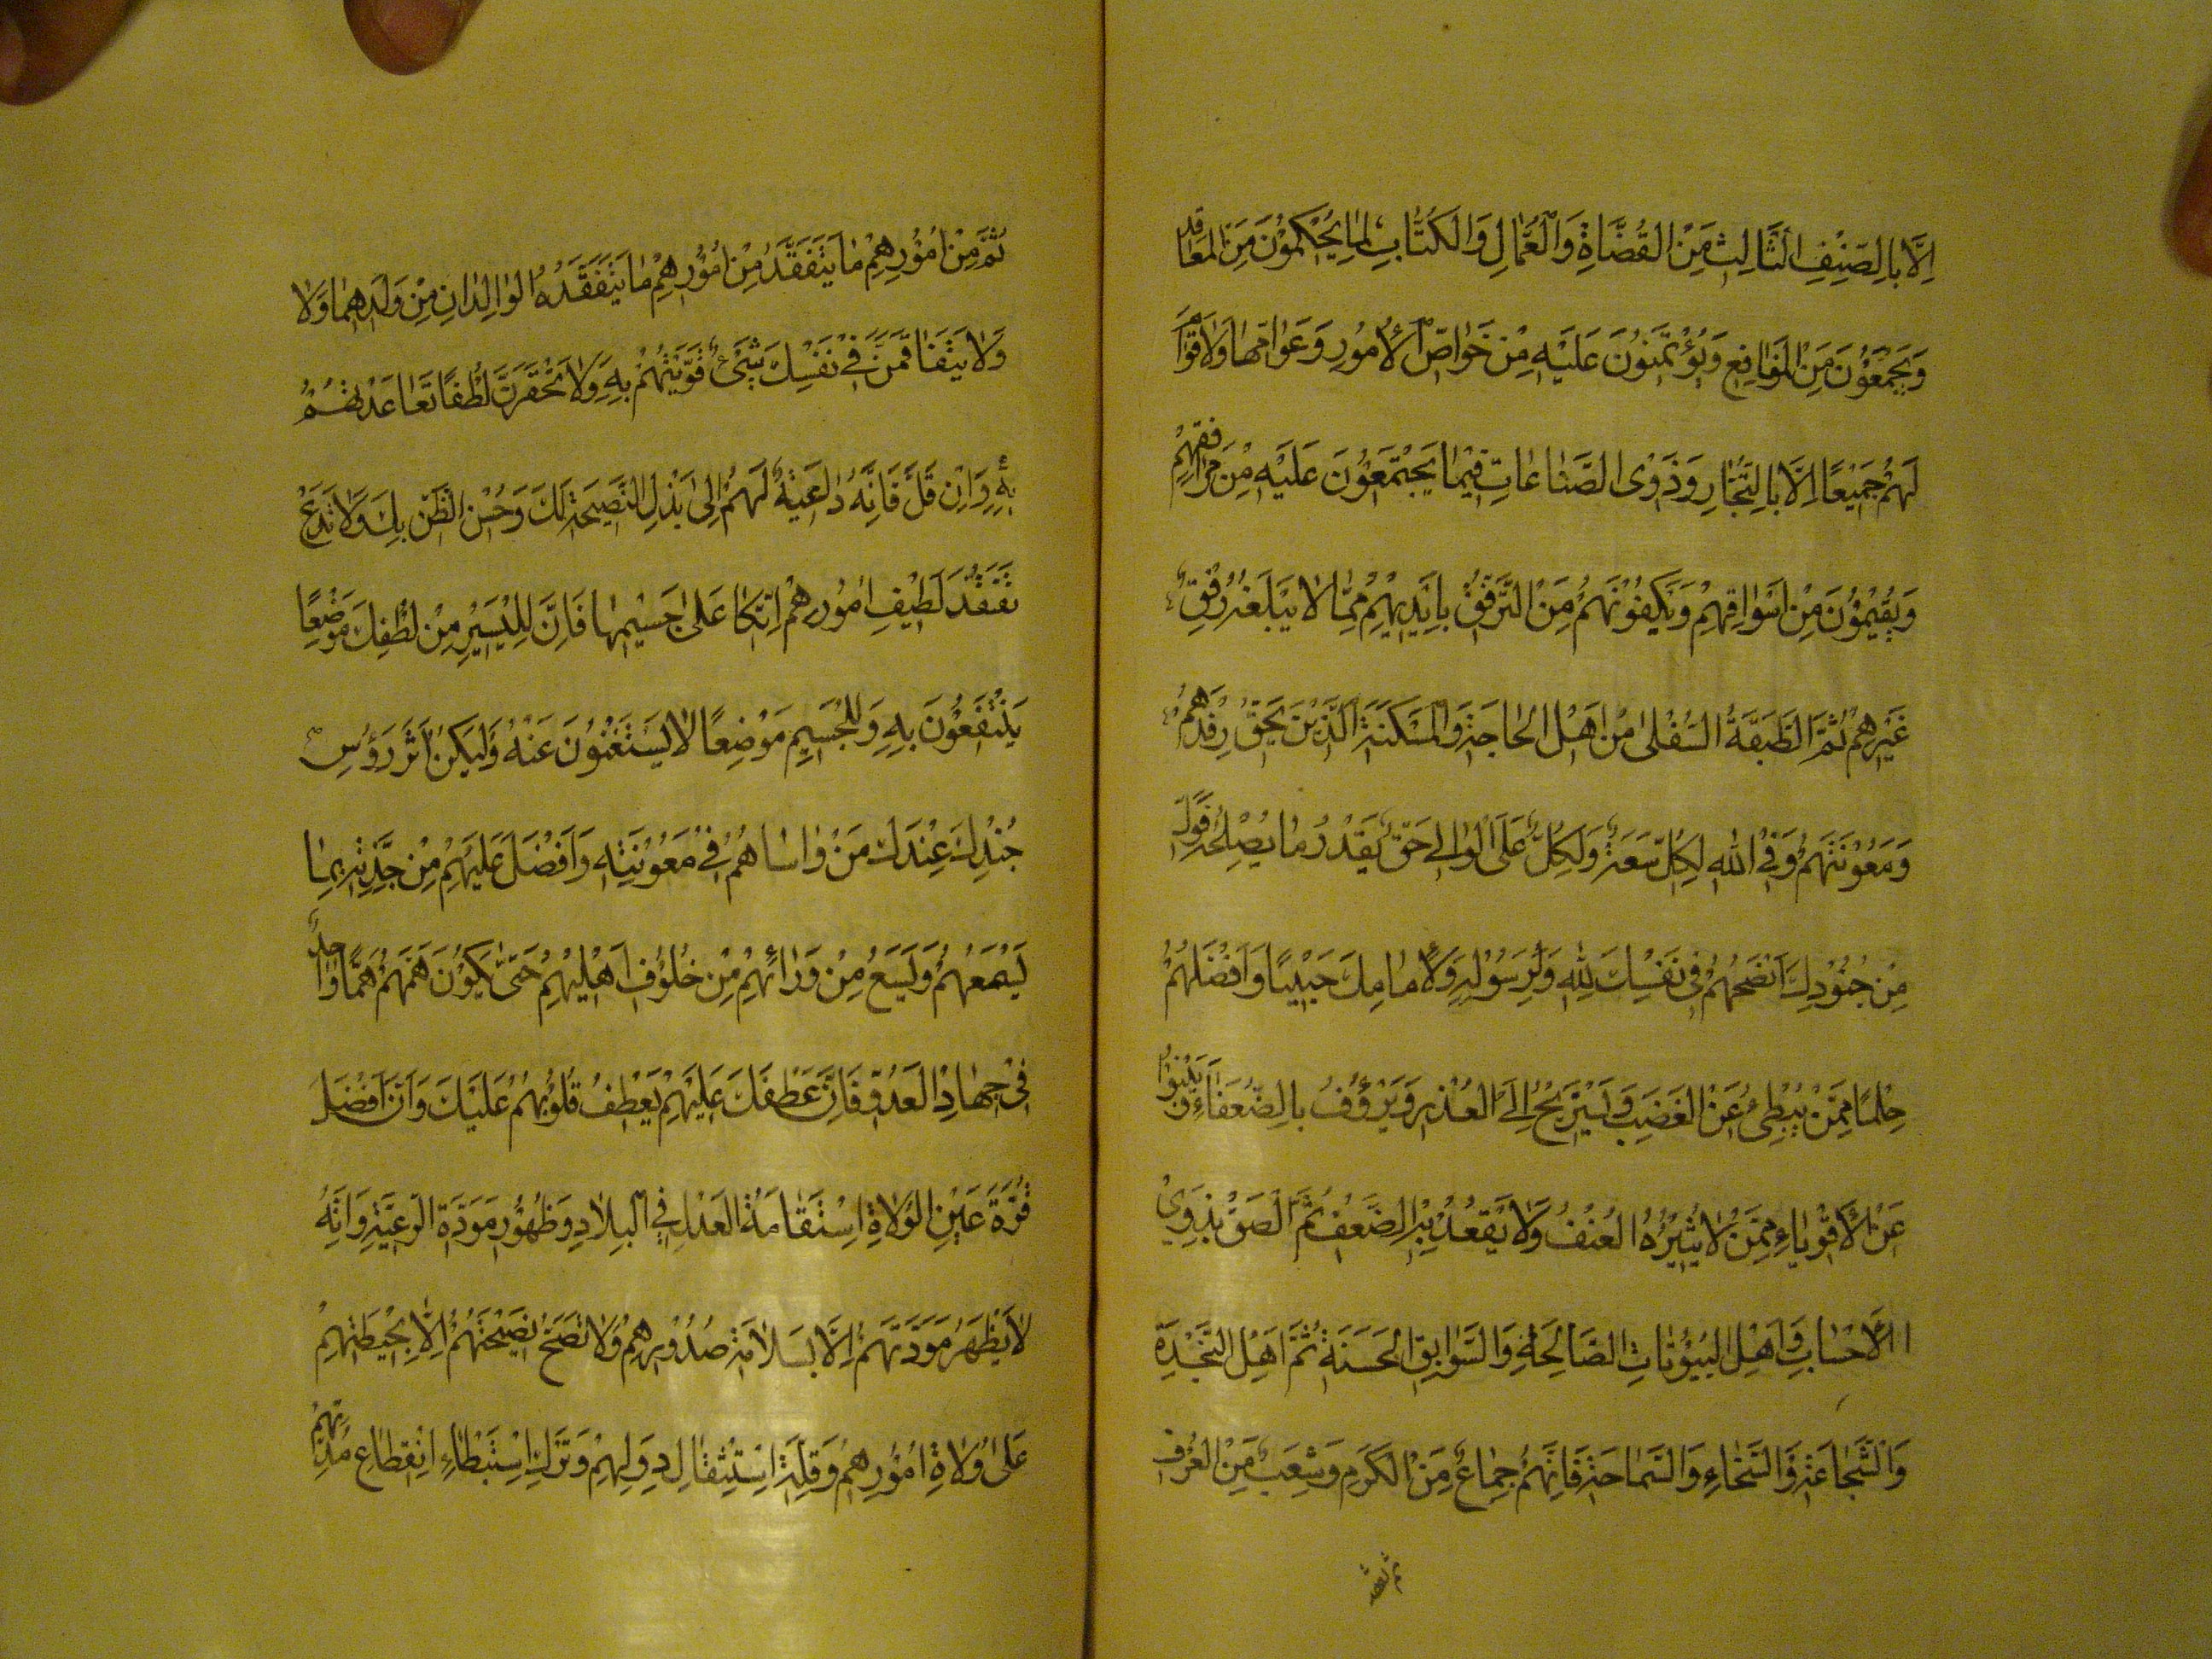 اِلَّا بِالصِّنْفِ الثَّالِثِ مِنَ الْقُضَاةِ وَالْعُمَّالِ وَالْكُتَّابِ لِمَا يُحْكِمُوْنَ مِنَ الْمَعَاقِدِ
وَيَجْمَعُوْنَ مِنَ الْمَنَافِعِ وَيُؤْتَمَنُوْنَ عَلَيْهِ مِنْ خَوَاصِّ الْاُمُوْرِ وَعَوَامِّهَا وَلَا قِوَامَ
لَهُمْ جَمِيْعًا اِلَّا بِالتُّجَّارِ وَذَوِى الصَّنَاعَاتِ فِيْمَا يَجْتَمِعُوْنَ عَلَيْهِ مِنْ مَرَافِقِهِمْ
وَيُقِيْمُوْنَ مِنْ اَسْوَاقِهِمْ وَيَكْفُوْنَهُمْ مِنَ التَّرَفُّقِ بِاَيْدِيْهِمْ مِمَّا لَا يَبْلُغُهُ رِفْقُ
غَيْرِهِمْ ثُمَّ الطَّبَقَةُ السُّفْلٰى مِنْ اَهْلِ الْحَاجَةِ وَالْمَسْكَنَةِ الَّذِيْنَ يَحِقُّ رِفْدُهُمْ
وَمَعُوْنَتُهُمْ وَفِى اللّٰهِ لِكُلٍّ سَعَةٌ وَلِكُلٍّ عَلَى الْوَالِى حَقٌّ بِقَدْرِ مَا يُصْلِحُهُ فَوَلِّ
مِنْ جُنُوْدِكَ اَنْصَحَهُمْ فِى نَفْسِكَ لِلّٰهِ وَلِرَسُوْلِهِ وَلِاِمَامِكَ جَيْبًا وَاَفْضَلَهُمْ
حِلْمًا مِمَّنْ يُبْطِئُ عَنِ الْغَضَبِ وَيَسْتَرِيْحُ اِلَى الْعُذْرِ وَيَرْؤُفُ بِالضُّعَفَاءِ وَيَنْبُوْا
عَنِ الْاَقْوِيَاءِ مِمَّنْ لَا يُثِيْرُهُ الْعُنْفُ وَلَا يَقْعُدُ بِهِ الضَّعْفُ ثُمَّ الْصَقْ بِذَوِى
الْاَحْسَابِ وَاَهْلِ الْبُيُوْتَاتِ الصَّالِحَةِ وَالسَّوَابِقِ الْحَسَنَةِ ثُمَّ اَهْلِ النَّجْدَةِ
وَالشَّجَاعَةِ وَالسَّخَاءِ وَالسَّمَاحَةِ فَاِنَّهُمْ جِمَاعٌ مِنَ الْكَرَمِ وَشِعَبٌ مِنَ الْعُرْفِ
ثُمَّ مِنْ اُمُوْرِهِمْ مَا يَتَفَقَّدُ مِنْ اُمُوْرِهِمْ مَا يَتَفَقَّدُهُ الْوَالِدَانِ مِنْ وَلَدِهِمَا وَلَا
وَلَا يَتَفَاقَمَنَّ فِى نَفْسِكَ شَىْءٌ قَوَّيْتَهُمْ بِهِ وَلَا تَحْقِرَنَّ لُطْفًا تَعَاهَدْتَهُمْ
بِهِ وَاِنْ قَلَّ فَاِنَّهُ دَاعِيَةٌ لَهُمْ اِلٰى بَذْلِ النَّصِيْحَةِ لَكَ وَحُسْنِ الظَّنِّ بِكَ وَلَا تَدَعْ
تَفَقُّدَ لَطِيْفِ اُمُوْرِهِمْ اِتِّكَالًا عَلٰى جَسِيْمِهَا فَاِنَّ لِلْيَسِيْرِ مِنْ لُطْفِكَ مَوْضِعًا
يَنْتَفِعُوْنَ بِهِ وَلِلْجَسِيْمِ مَوْضِعًا لَا يَسْتَغْنُوْنَ عَنْهُ وَلْيَكُنْ اٰثَرُ رُؤُسِ
جُنْدِكَ عِنْدَكَ مَنْ وَاسَاهُمْ فِى مَعُوْنَتِهِ وَاَفْضَلَ عَلَيْهِمْ مِنْ جِدَتِهِ بِمَا
يَسَعُهُمْ وَيَسَعُ مِنْ وَرَائِهِمْ مِنْ خُلُوْفِ اَهْلِيْهِمْ حَتّٰى يَكُوْنَ هَمُّهُمْ هَمًّا وَاحِدًا
فِى جِهَادِ الْعَدُوِّ فَاِنَّ عَطْفَكَ عَلَيْهِمْ يَعْطِفُ قُلُوْبَهُمْ عَلَيْكَ وَاَنَّ اَفْضَلَ
قُرَّةِ عَيْنِ الْوُلَاةِ اِسْتِقَامَةُ الْعَدْلِ فِى الْبِلَادِ وَظُهُوْرُ مَوَدَّةِ الرَّعِيَّةِ وَاَنَّهُ
لَا يَظْهَرُ مَوَدَّتُهُمْ اِلَّا بِسَلَامَةِ صُدُوْرِهِمْ وَلَا تَصِحُّ نَصِيْحَتُهُمْ اِلَّا بِحِيْطَتِهِمْ
عَلٰى وُلَاةِ اُمُوْرِهِمْ وَقِلَّةِ اسْتِثْقَالِ دُوَلِهِمْ وَتَرْكِ اسْتِبْطَاءِ انْقِطَاعِ مُدَّتِهِمْ